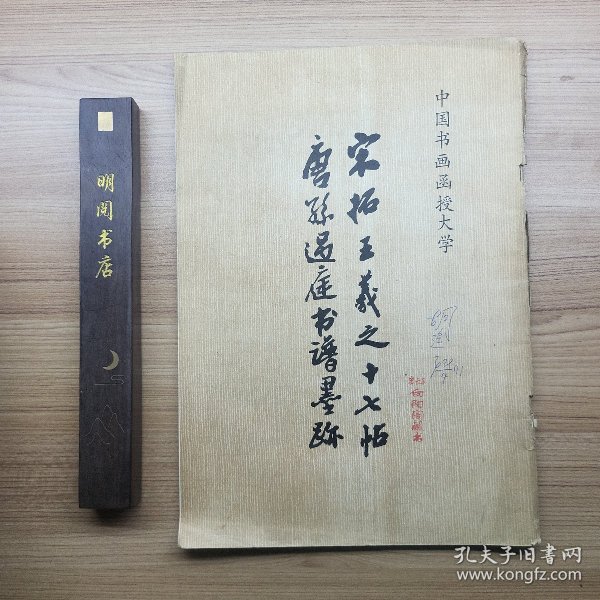 中国书画函授大学
宋拓王羲之十七帖
唐孙过庭书谱墨跡
明阅书店
孔夫子旧书网
www.kongfz.com